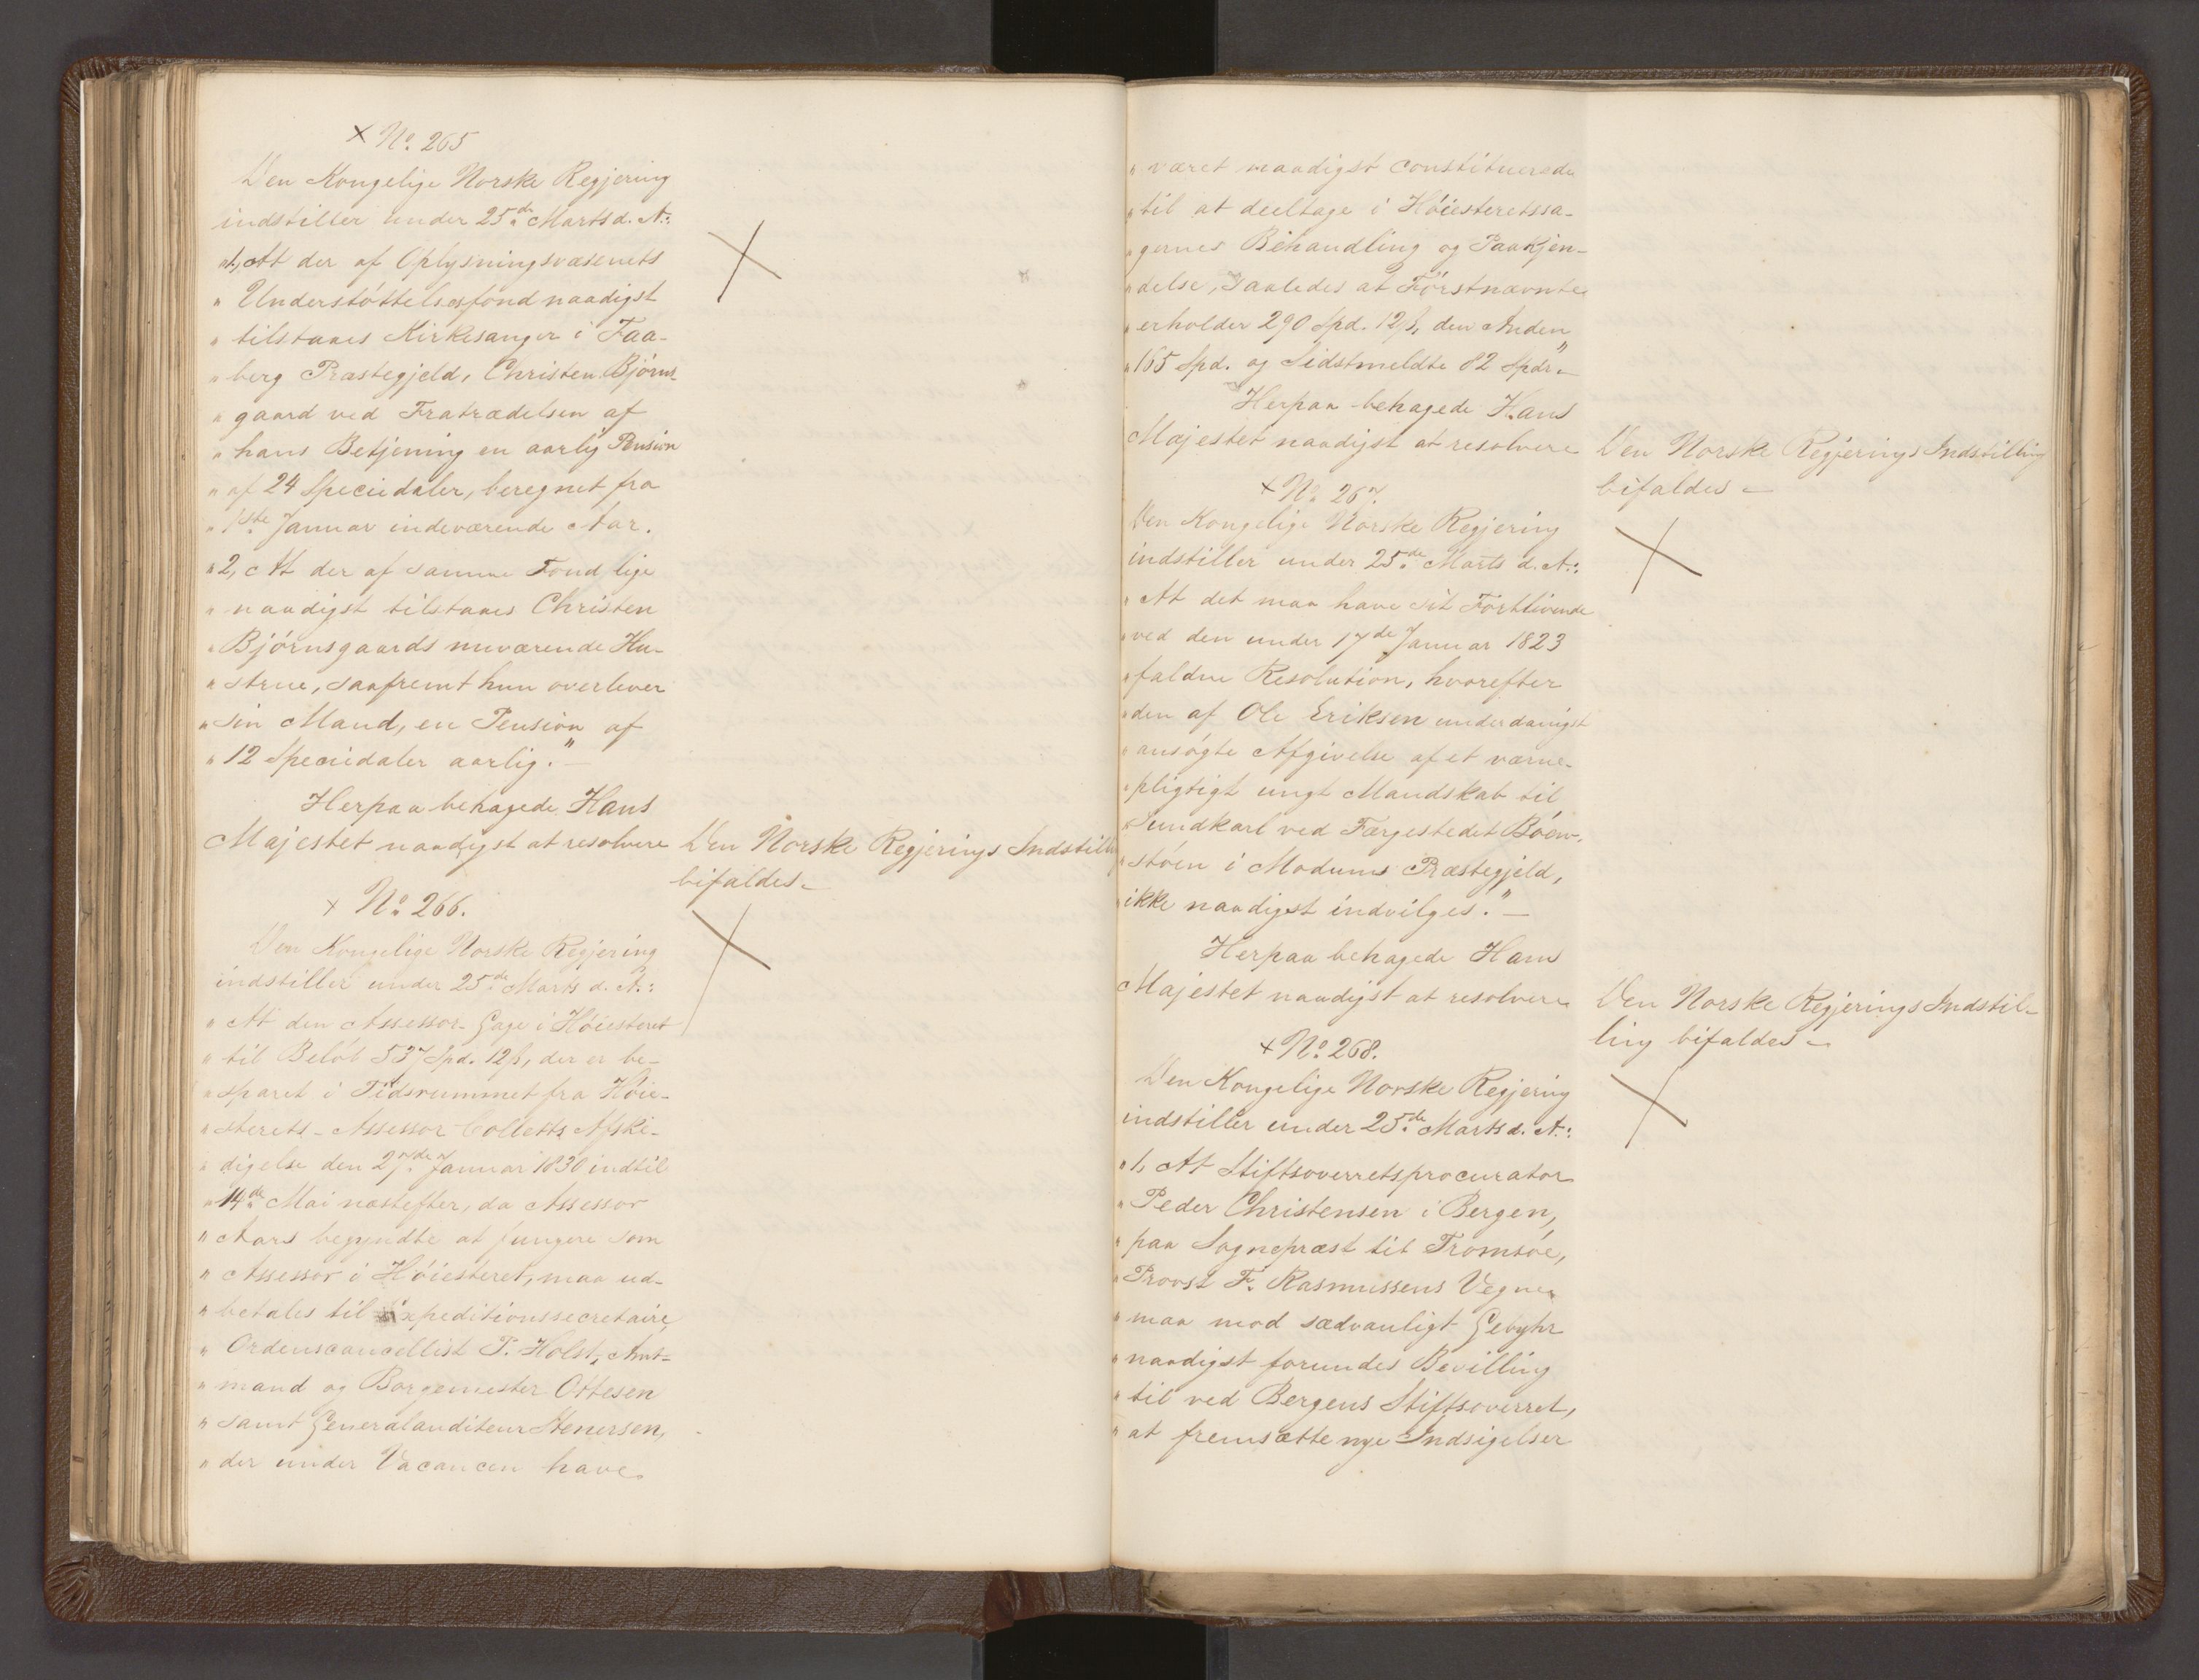 × No. 265
Den Kongelige Norske Regjering
indstiller under 25de Marts d. A.:
"1, At der af Oplysningsvæsenets
" Understöttelsesfond naadigst
" tilstaaes Kirkesanger i Faa-
" berg Præstegjeld, Christen Björns-
" gaard ved Fratrædelsen af
" hans Betjening en aarlig Pension
" af 24 Speciedaler, beregnet fra
" 1ste Januar indeværende Aar.
" 2, At der af samme Fond lige
" naadigst tilstaaes Christen
" Björnsgaards nuværende Hu-
" strue, saafremt hun overlever
" sin Mand, en Pension af
" 12 Speciedaler aarlig." –
Herpaa behagede Hans
Majestet naadigst at resolvere
Den Norske Regjerings Indstilling
bifaldes. –
× No. 266.
Den Kongelige Norske Regjering
indstiller under 25de Marts d. A.:
" At den Assessor-Gage i Höiesteret
" til Belöb 537 Spd. 12 ß, der er be-
" sparet i Tidsrummet fra Höie-
" sterets-Assessor Colletts Afske-
" digelse den 27de Januar 1830 indtil
" 14de Mai næstefter, da Assessor
" Aars begyndte at fungere som
" Assessor i Höiesteret, maa ud-
" betales til Expeditionssecretaire,
" Ordenscancellist P. Holst, Amt-
" mand og Borgemester Ottesen
" samt Generalauditeur Stenersen,
" der under Vacancen have
" været naadigst constituerede
" til at deeltage i Höiesteretssa-
" gernes Behandling og Paakjen-
" delse, saaledes at Förstnævnte
" erholder 290 Spd. 12 ß, den Anden
" 165 Spd. og Sidstmeldte 82 Spdr" –
Herpaa behagede Hans
Majestet naadigst at resolvere
Den Norske Regjerings Indstilling
bifaldes –
× No. 267.
Den Kongelige Norske Regjering
indstiller under 25de Marts d. A.:
" At det maa have sit Forblivende
" ved den under 17de Januar 1823
" faldne Resolution, hvorefter
" den af Ole Eriksen underdanigst
" ansögte Afgivelse af et værne-
" pligtigt ungt Mandskab til
" Sundkarl ved Færgestedet
" stöen i Modums Præstegjeld,
" ikke naadigst indvilges." –
Herpaa behagede Hans
Majestet naadigst at resolvere
Den Norske Regjerings Indstil-
ling bifaldes –
× No. 268.
Den Kongelige Norske Regjering
indstiller under 25de Marts d. A.:
" 1, At Stiftsoverretsprocurator
" Peder Christensen i Bergen,
" paa Sognepræst til Tromsöe,
" Provst F. Rasmussens Vegne
" maa mod sædvanligt Gebyhr
" naadigst forundes Bevilling
" til ved Bergens Stiftsoverret,
" at fremsætte nye Indsigelser